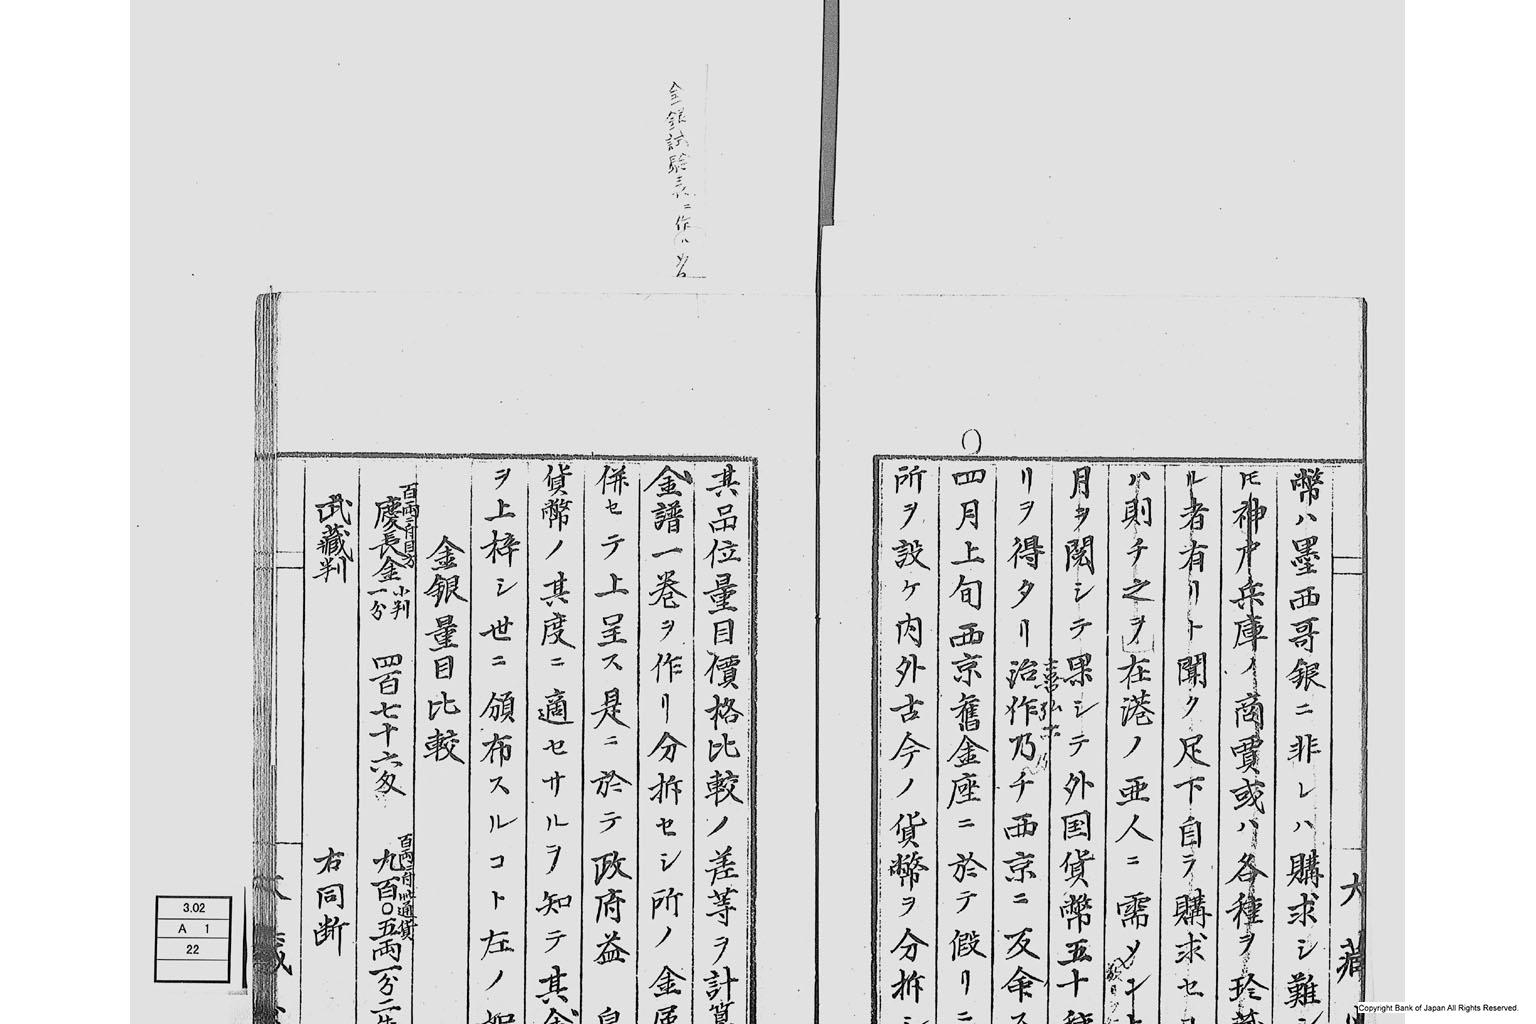 幣ハ墨西哥銀ニ非レハ購求シ難シ
𪜈神戸兵庫ノ商賈或ハ各種ヲ珍蔵
ル者有リト聞ク足下自ラ購求セ
ハ則チ之ヲ在港ノ亜人ニ需メン
月ヲ閲シテ果シテ外国貨幣五十種
リヲ得タリ治作乃チ西京ニ反命ス
四月上旬西京舊金座ニ於テ假リニ
所ヲ設ケ内外古今ノ貨幣ヲ分拆シ
大藏
金銀試験表ニ作ハ
其品位量目價格比較ノ差等ヲ計算
金譜一巻ヲ作リ分拆セシ所ノ金属
併セテ上呈ス是ニ於テ政府益
貨幣ノ其度ニ適セサルヲ知テ其
ヲ上梓シ世ニ頒布スルコト左ノ如
金銀量目比較
百両ニ付目方
慶長金 小判 一分 四百七十六匁
百両ニ付此通貨
九百〇五両一分二朱
武藏判 右同断
3.02
A 1
22
Copyright Bank of Japan All Rights Reserved.